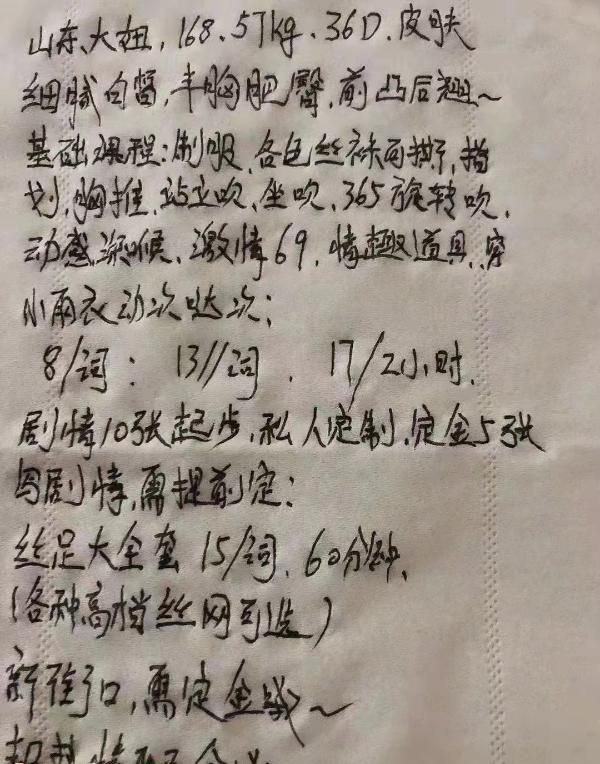 山东、大妞,168.57kg、36D.皮肤
细腻白皙,丰胸肥臀,前凸后翘~
基础课程:制服、各色丝袜可撕,指
划,胸推、站立吹、坐吹、365旋转吹、
动感深喉、激情69,情趣道具,穿
小雨衣动次哒次;
8/词: 13//词、 17/2小时.
剧情10张起步,私人定制、定金5张
写剧情,需提前定:
丝足大全套 15/词、60分钟、
(各种高档丝网可选)
新街口,需定金哦~